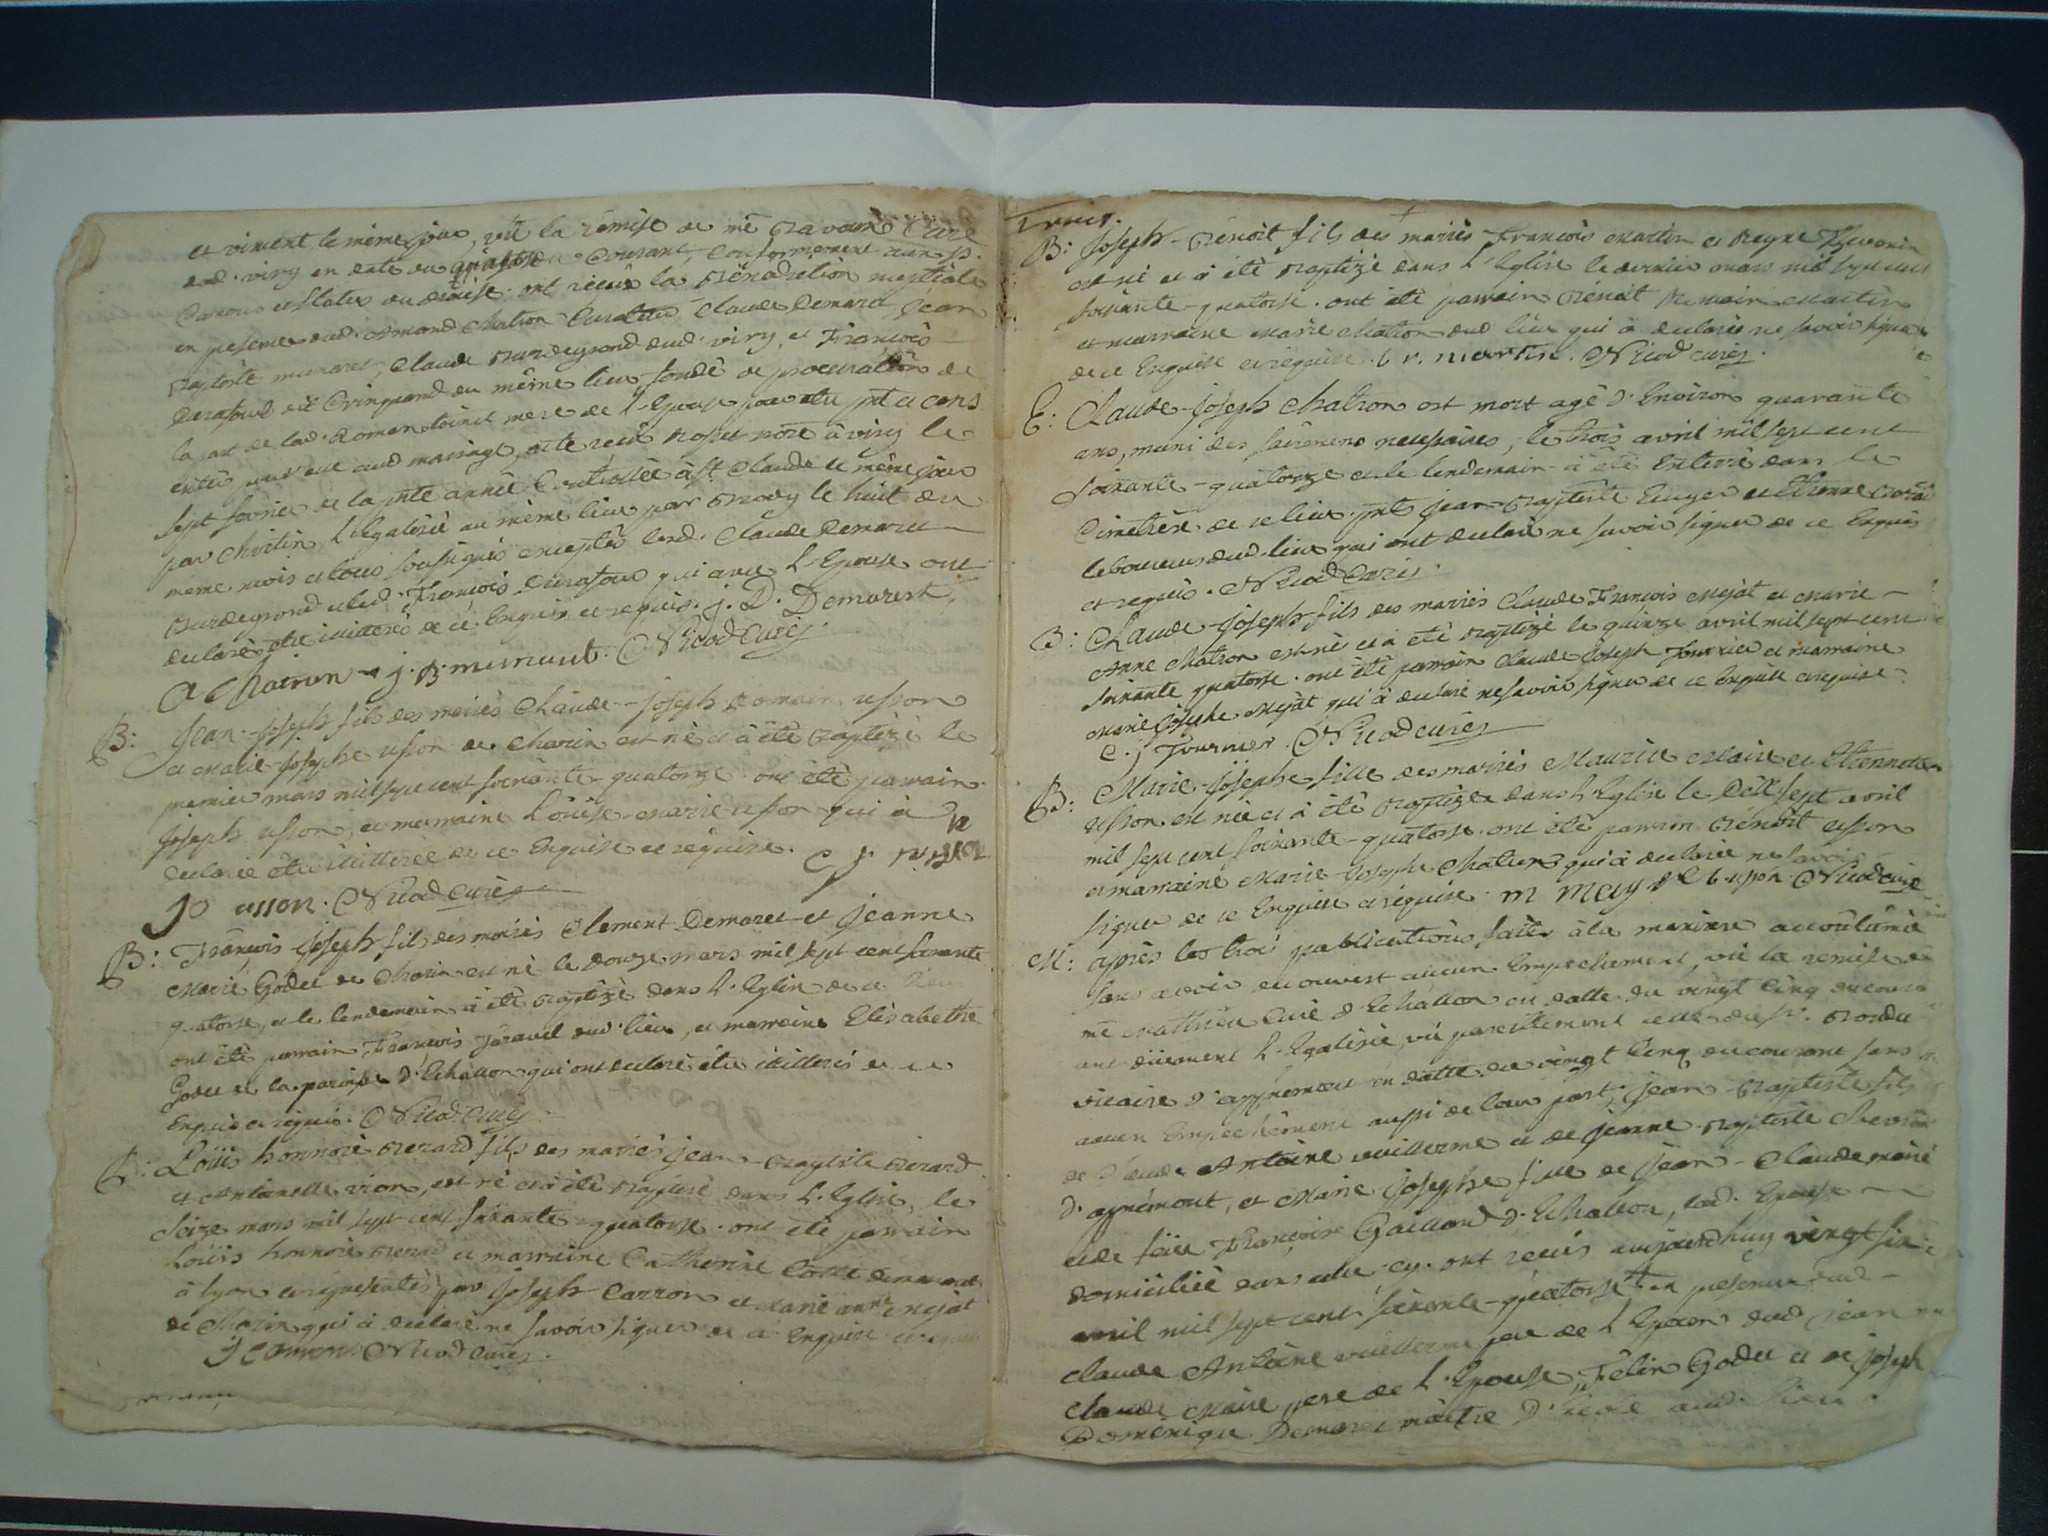 et virient le même jour, vû la remise de mre Bavoux Curé
dud. viry en date du quatorze Courant, Conformement aux ss.
Canons et statuts du diocese ont reçus la Bénédiction nuptiale
en presence dud. Amand Chatron Curateur Claude Demaret jean
Baptiste munant, Claude Burdegrond dud. viry, et François
Durafour dit Crinquand du même lieu fondé de procuration de
la part de lad. mere de l'Epouse pour etre pnt et cons
entir pour elle aud mariage, acte reçu Rosset nore à viry le
sept fevrier de la pnte année Controllée à st Claude le même jour
par Christin, l'Egalisée au même lieu par le huit du
même mois et tous soussignés exceptés lesd. Claude Demaret
Burdegrond et led. François Durafour qui avec l'Epouse ont
declaré etre illiterés de ce Enquis et requis. j. D. Demarest,
A Chatron j. B. munant. Nicod curé
B: Jean-Joseph fils des mariés Claude-Joseph Romain usson
et Marie Josephe usson de Charin est né et à été Baptizé le
premier mars mil sept cent soixante-quatorze ont été parrain
joseph usson, et marraine Louise-Marie usson qui à
declaré etre illitterée de ce Enquise et requise. C J usson
Jo usson. Nicod Curé
B: François-Joseph fils des mariés Clement Demaret et Jeanne
Marie Godet de Charin est né le douze mars mil sept cent soixante
quatorze, et le lendemain à été Baptizé dans l'Eglise de ce lieu
ont été parrain François Juravel dud. lieu, et marraine Elisabethe
Godet de la paroisse d'Echallon qui ont declaré etre illitterés de ce
Enquis et requis. Nicod Curé
B: Louis honnoré Berard fils des mariés Jean-Baptiste Berard
et Antoinette vion, est né et à été Baptizé dans l'Eglise, le
seize mars mil sept cent soixante-quatorze. ont été parrain
Louis honnoré Berard et marraine Catherine Cotte demeurant
à Lyon et representés par Joseph Carron et Marie anne mejat
de Charin qui à declaré ne savoir signer de ce Enquise et requise
J Caron. Nicod Curé.
B: Joseph-Benoit fils des mariés François Martin et Reyne Thevenin
est né et à été Baptizé dans l'Eglise le dernier mars mil sept cent
soixante-quatorze. ont été parrain Benoit Romain Martin
et marraine Marie Chatron dud lieu qui à declarée ne savoir signer
de ce Enquise et requise. b. r. martin. Nicod curé.
E: Claude-Joseph Chatron est mort agé d'Environ quarante
ans, muni des sacremens necessaires, le trois avril mil sept cent
soixante-quatorze et le lendemain à été Enterré dans le
Cimetière de ce lieu. pnt jean-Baptiste Euger et Etienne
laboureurs dud. lieu qui ont declaré ne savoir signer de ce Enquis
et requis. Nicod Curé.
B: Claude-Joseph fils des mariés Claude François Mejat et Marie-
Anne Chatron est né et à été Baptizé le quinze avril mil sept cent
soixante quatorze. ont été parrain Claude Joseph Fournier et marraine
Marie Josephe Mejat qui à declaré ne savoir signer de ce Enquise et requise.
C. J Fournier. Nicod curé
B: Marie-Josephe fille des mariés Maurice Maire et Etiennette
usson est née et à été Baptizée dans l'Eglise le dixsept avril
mil sept cent soixante-quatorze. ont été parrain Benoit usson
et marraine Marie-Josephe Chatron qui à declarée ne savoir
signer de ce Enquise et requise. m may b usson. Nicod curé
M: après les trois publications faites à la maniere accoutumée
sans avoir decouvert aucun Empechement, vû la remise de
mre Mathieu Curé d'Echallon en datte du vingt cinq du courant
duement l'Egalisée, vû pareillement celle du sr. Bondet
vicaire d'appremont en datte du vingt Cinq du courant sans
aucun Empechement aussi de leur part; jean-Baptiste fils
de Claude Antoine vuillerme et de jeanne-Baptiste
d'appremont, et Marie Josephe fille de Jean-Claude Maire
et de feüe Françoise Gaillard d'Echallon, lad. Epouse
domiciliée dans celle-cy. ont reçus aujourd'huy vingt six
avril mil sept cent soixante-quatorze en presence dud
Claude Antoine vuillerme pere de l'Epoux dud jean
Claude Maire pere de l'Epouse, Felix Godet et de joseph
Domenique Demaret maitre d'ecole aud. lieu.